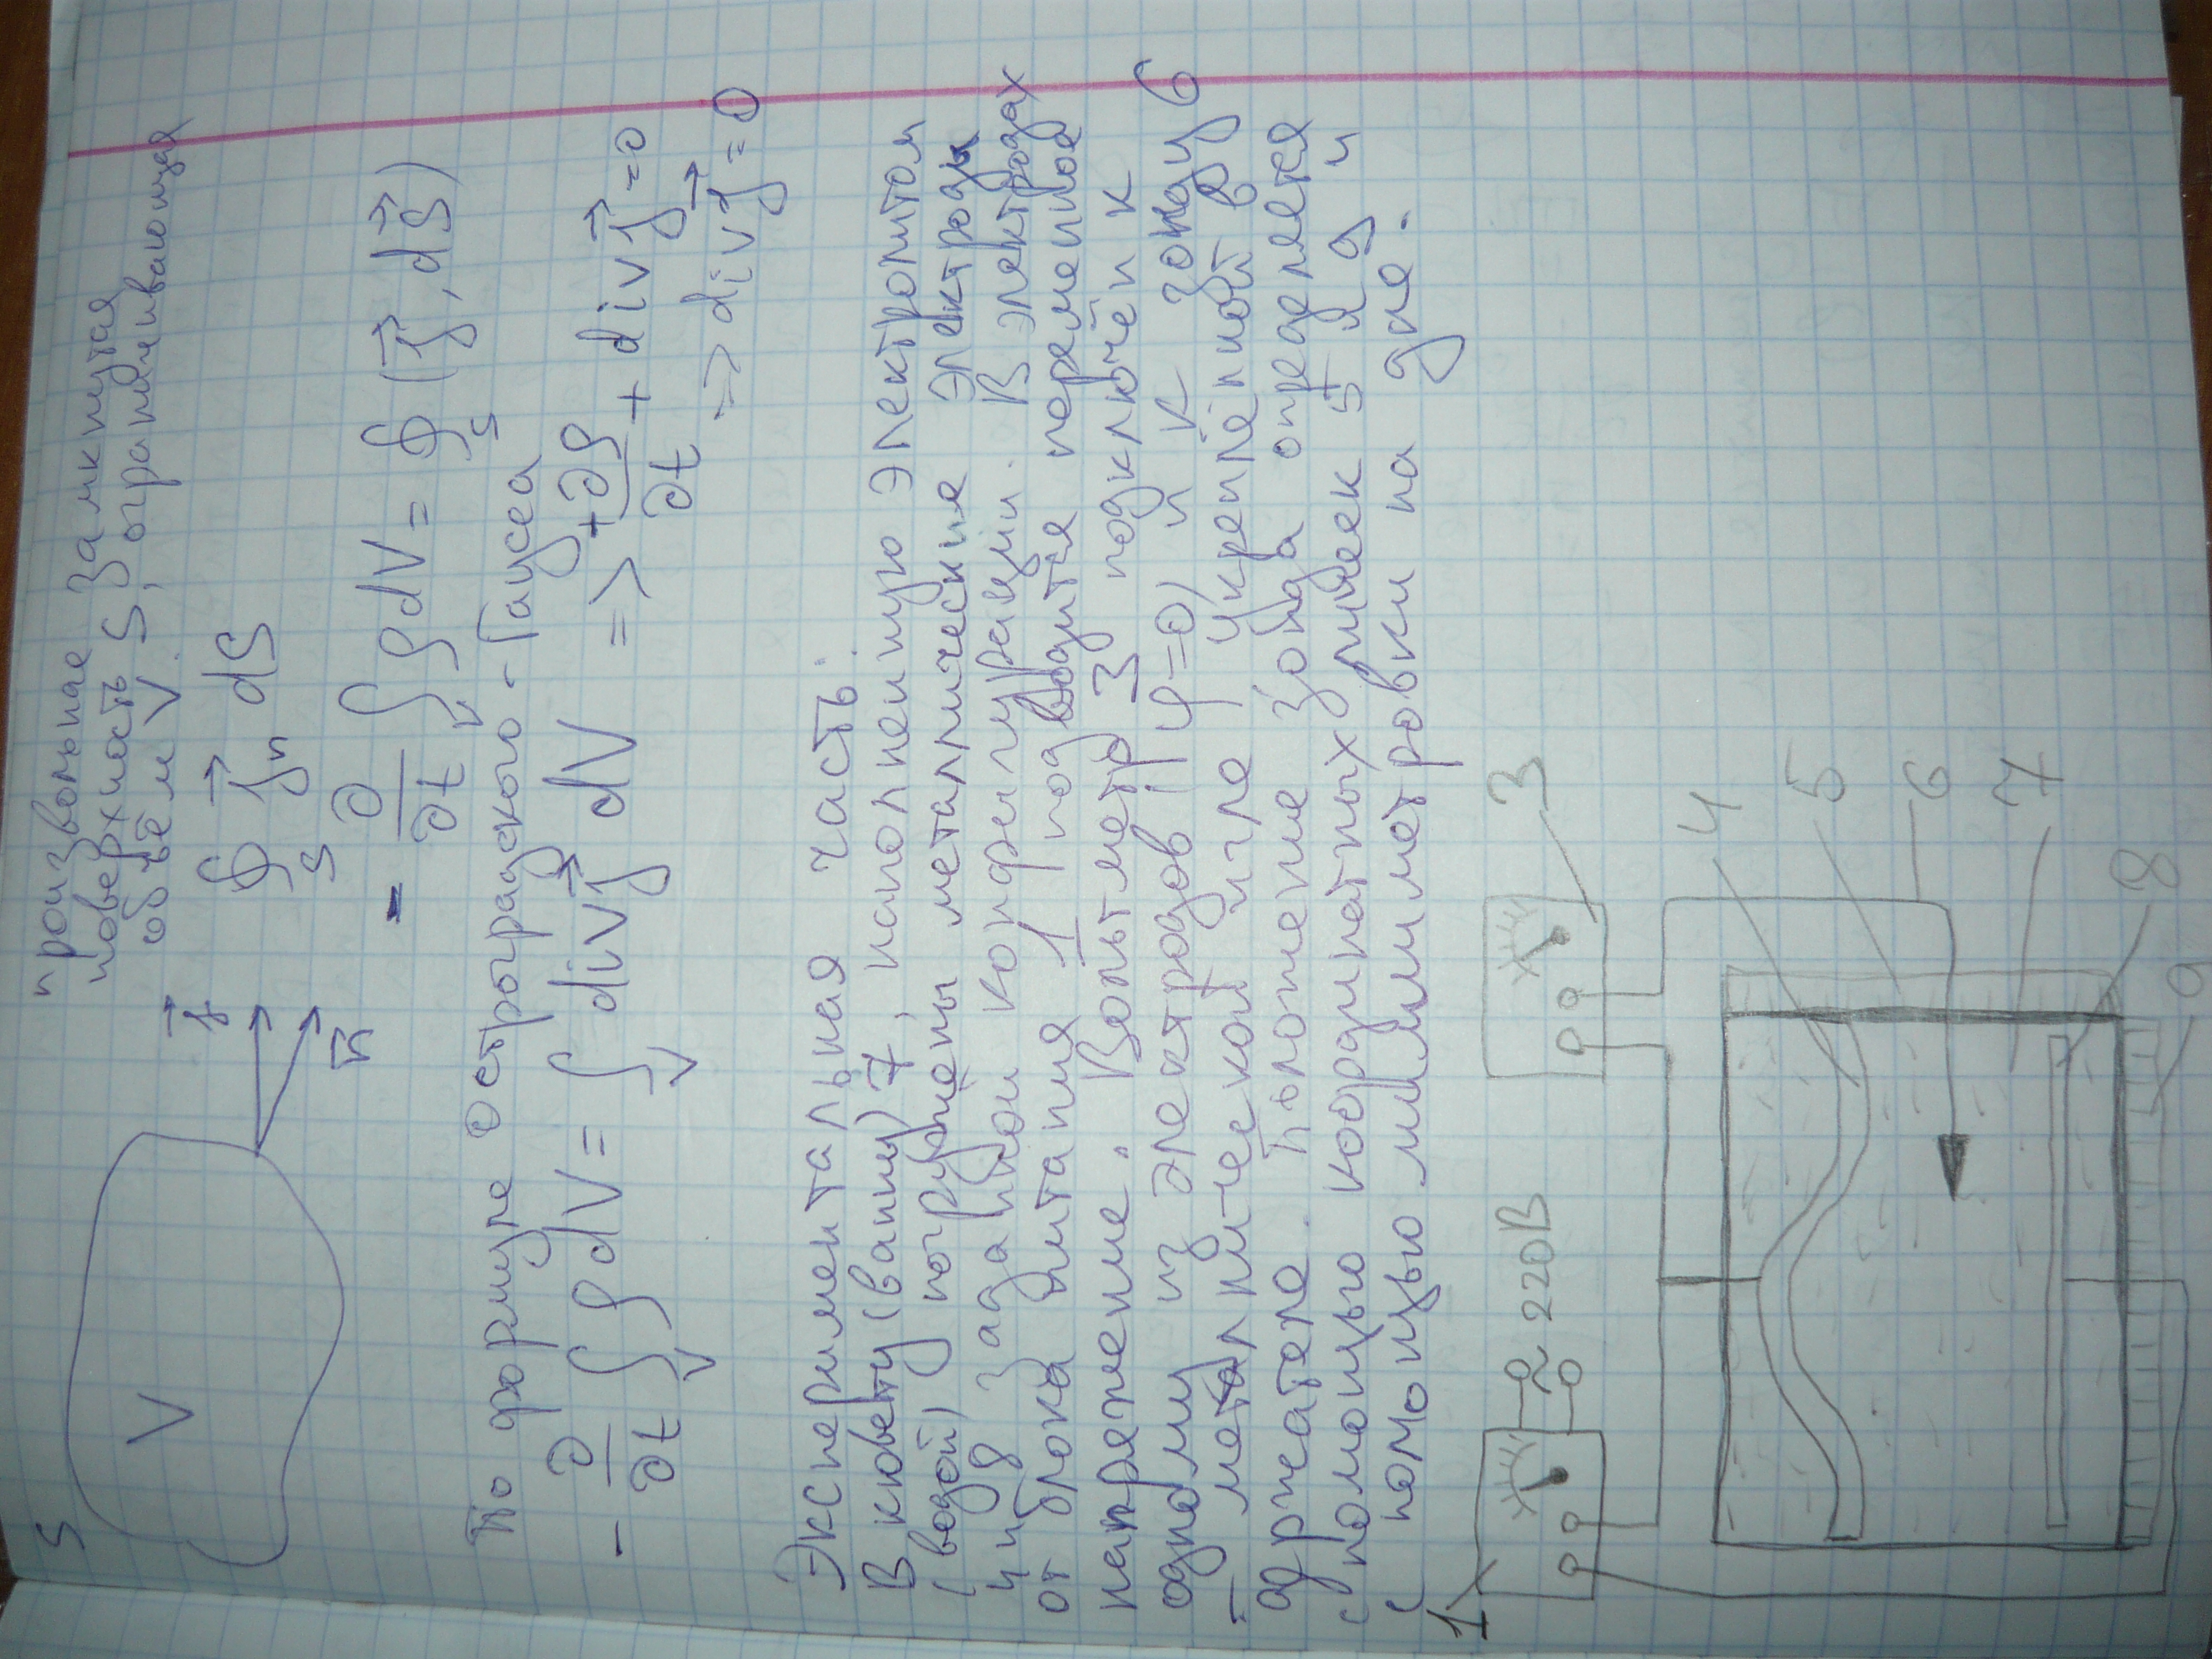 S
произвольная замкнутая
поверхность S, ограничивающая
объём V.
V
j⃗
n⃗
∮_S j⃗_n dS
- ∂/∂t ∫_V ρdV = ∮_S (j⃗, dS⃗)
По формуле Остроградского - Гаусса
- ∂/∂t ∫_V ρdV = ∫_V div j⃗ dV => +∂ρ/∂t + div j⃗ = 0
=> div j⃗ = 0
Экспериментальная часть:
В кювету (ванну) 7, наполненную электролитом
(водой) погружены металлические электроды
4 и 8 заданной конфигурации. В электродах
от блока питания 1 подводится переменное
напряжение. Вольтметр 3 подключён к
одному из электродов (φ=0) и к зонду 6
- металлической игле, укреплённой в
держателе. Положение зонда определяется
с помощью координатных линеек 5 и 9 и
с помощью миллиметровки на дне.
1
~ 220В
3
4
5
6
7
8
9